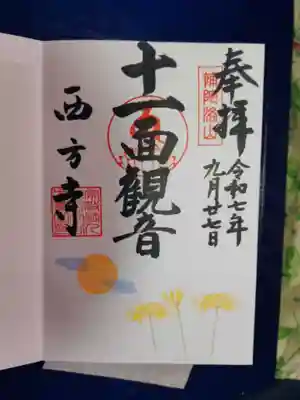 奉拝
令和七年
九月廿七日
補陀洛山
十一面観音
西方寺